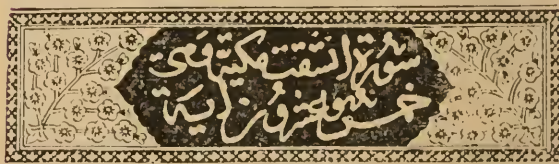 سورة انشقت مكية وهي
خمس وعشرون آية